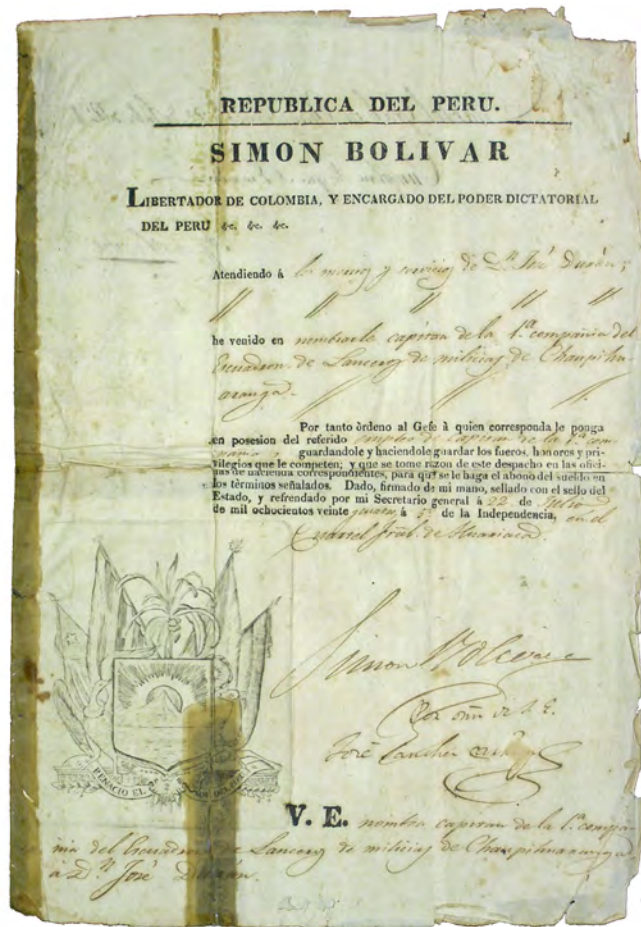 REPUBLICA DEL PERU.
SIMON BOLIVAR
LIBERTADOR DE COLOMBIA, Y ENCARGADO DEL PODER DICTATORIAL
DEL PERU &c. &c. &c.
Atendiendo á los meritos y servicios de Dn. José Durán;
he venido en nombrarle capitan de la 1.a compañia del
Escuadron de Lanceros de milicias de Chaupihua-
aranga.
Por tanto òrdeno al Gefe à quien corresponda le ponga
en posesion del referido empleo de capitan de la 1.a com-
guardandole y haciendole guardar los fueros, honores y pri-
vilegios que le competen; y que se tome razon de este despacho en las ofici-
nas de hacienda correspondientes, para que se le haga el abono del sueldo en
los términos señalados. Dado, firmado de mi mano, sellado con el sello del
Estado, y refrendado por mi Secretario general á 22 de Julio
de mil ochocientos veinte á 5.o de la Independencia, en el
Cuartel Jral. de Huariaca.
Simon Bolivar
Por orn de S. E.
José Sanchez
RENACIO EL SOL DEL PERU
V. E. nombra capitan de la 1.a compa-
ñia del Escuadron de Lanceros de milicias de Chaupihuaranga
à Dn. José Durán.